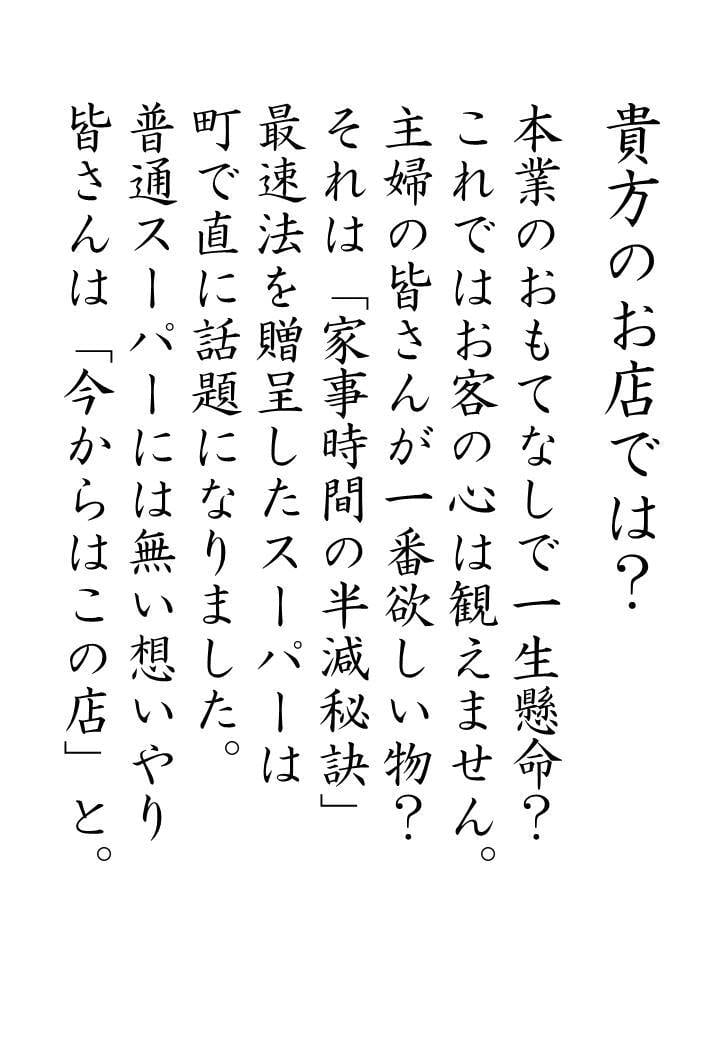 貴方のお店では？
本業のおもてなしで一生懸命？
これではお客の心は観えません。
主婦の皆さんが一番欲しい物？
それは「家事時間の半減秘訣」
最速法を贈呈したスーパーは
町で直に話題になりました。
普通スーパーには無い想いやり
皆さんは「今からはこの店」と。